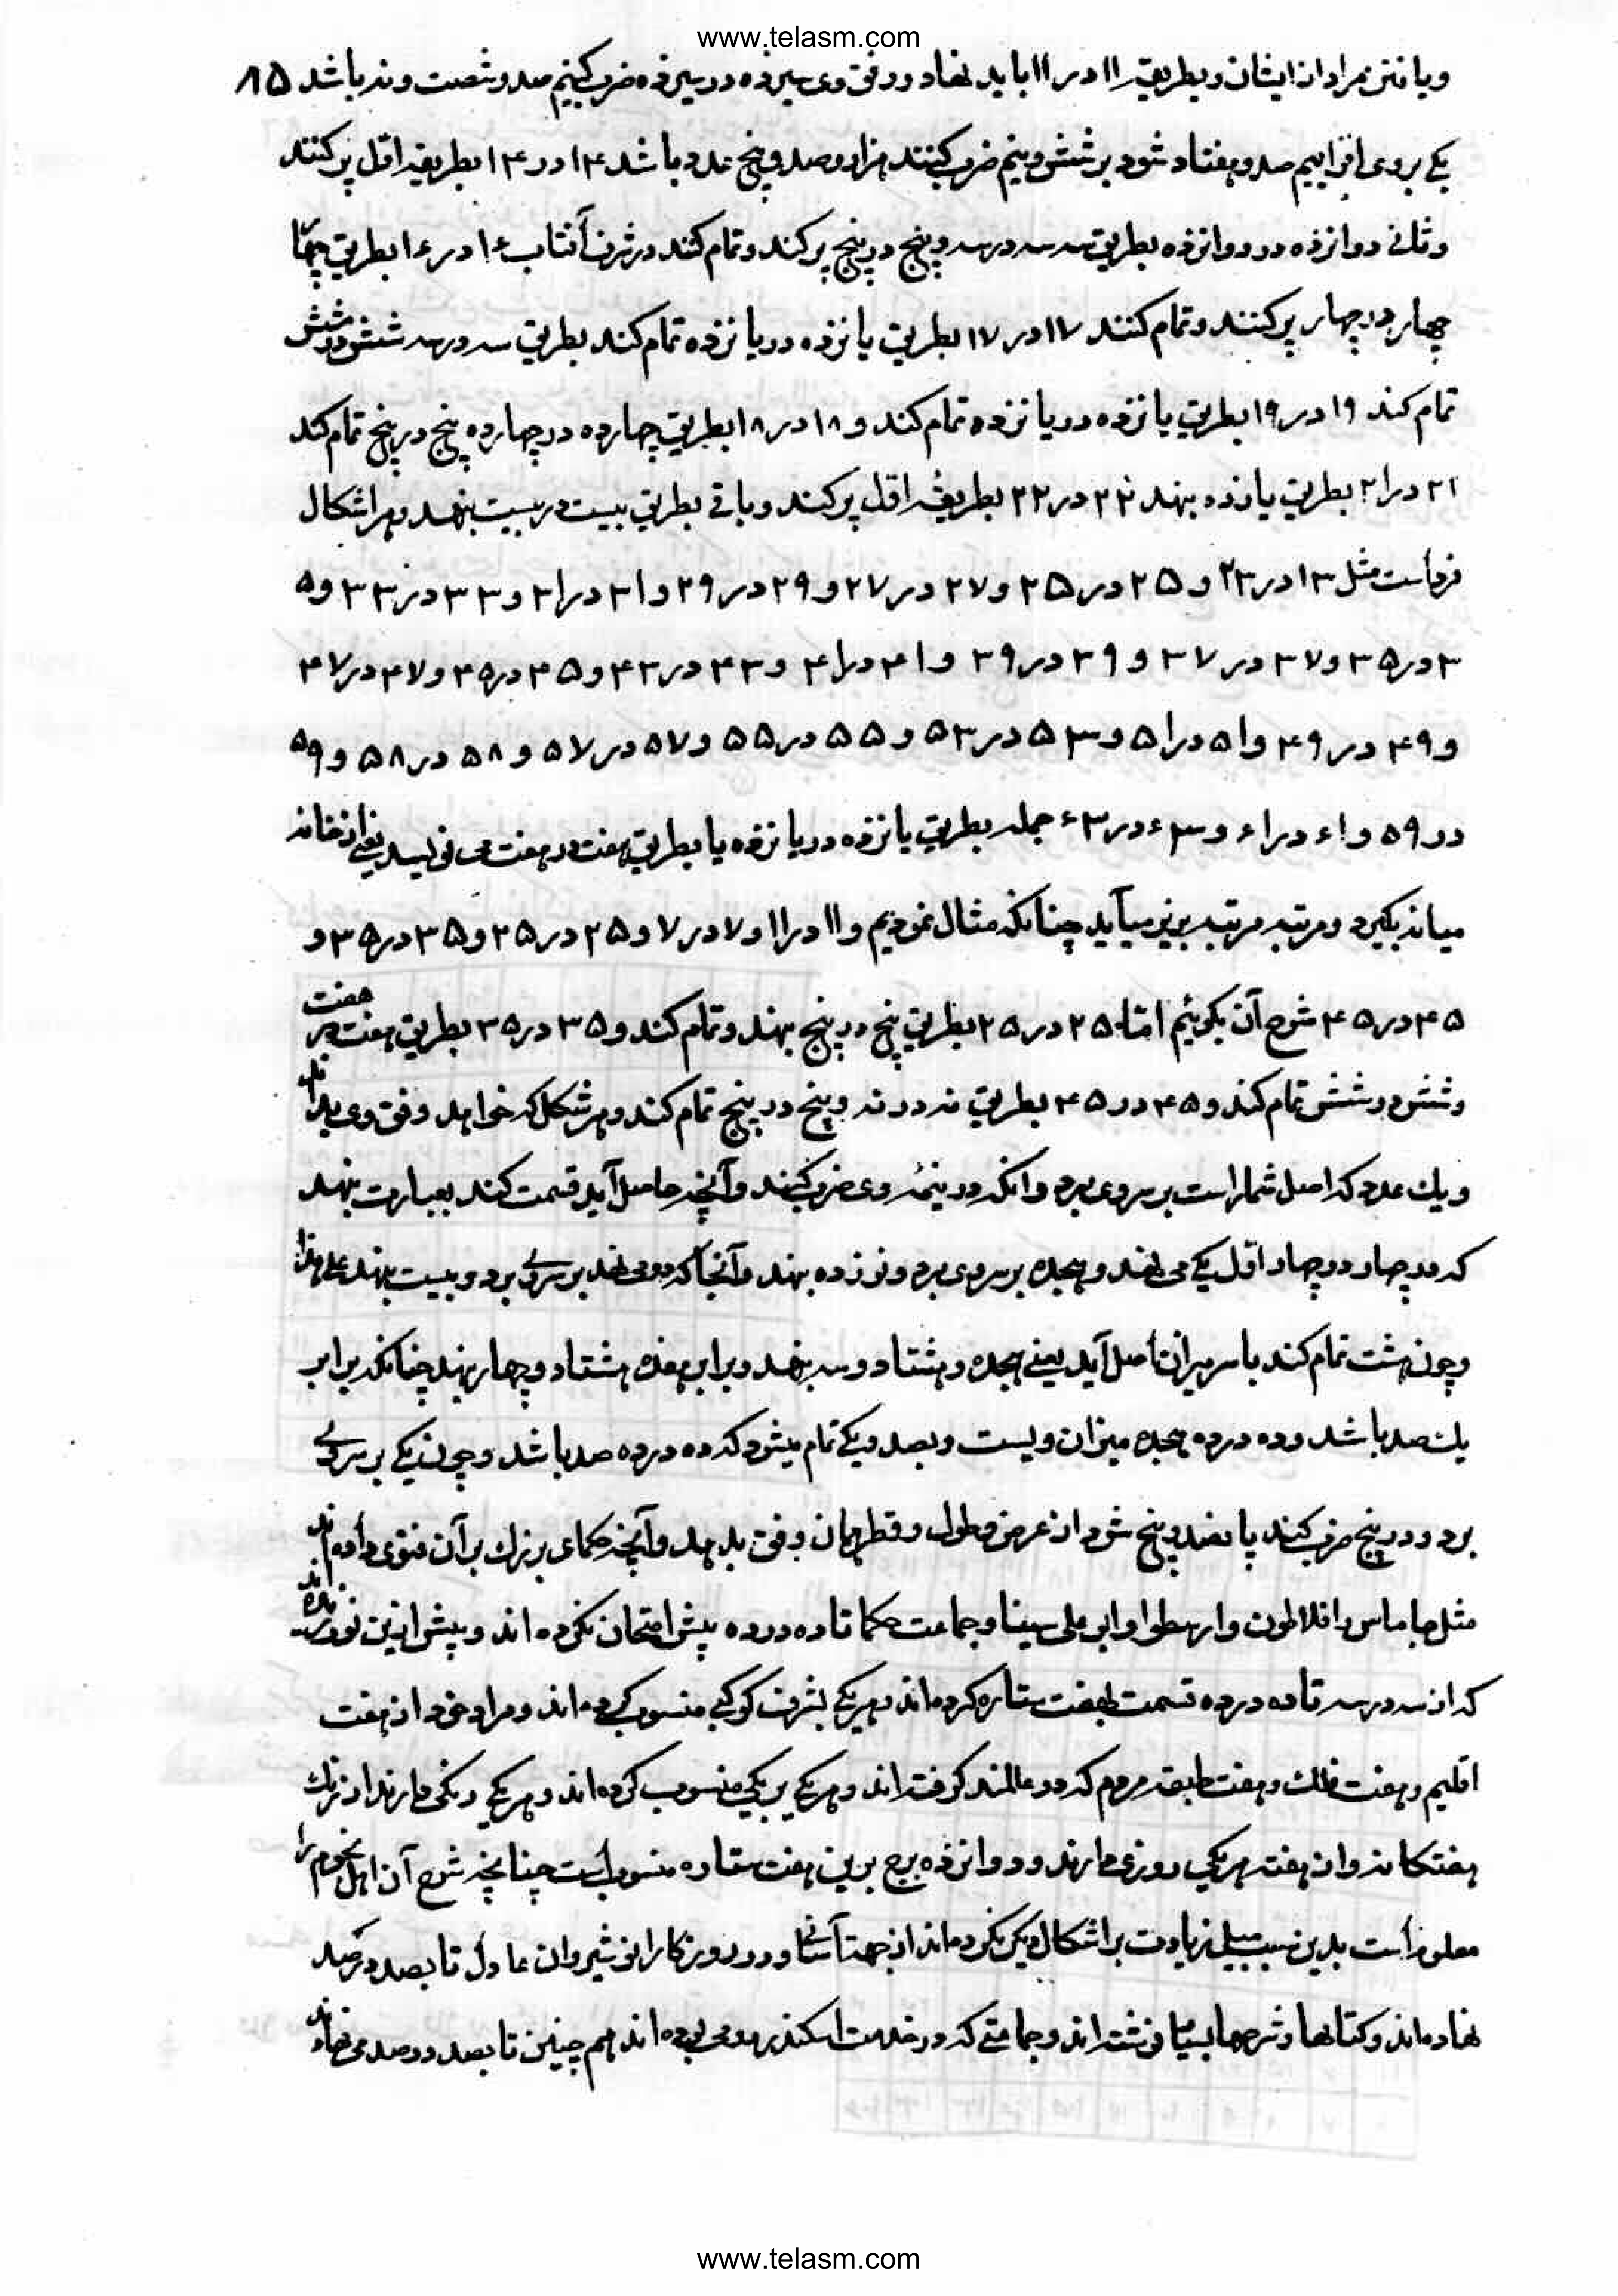 www.telasm.com
و یافتن مراد از ایشان و بطریق ۱۱ در ۱۱ باید نهاد و وفق وی سیزده در سیزده ضرب کنیم صد و شصت و نه باشد ۸۵
یکی بروی افزاییم صد و هفتاد شود بر شش و نیم ضرب کنند هزار و صد و پنج عدد باشد ۱۴ در ۱۴ بطریقه اول پر کنند
و ثانی دوازده در دوازده بطریق سه سه در سه و پنج در پنج پر کند و تمام کند در شرف آفتاب ۱۶ در ۱۶ بطریق چهار
چهار در چهار پر کنند و تمام کنند ۱۷ در ۱۷ بطریق پانزده در پانزده تمام کند بطریق سه در سه شش در شش
تمام کند ۱۹ در ۱۹ بطریق پانزده در پانزده تمام کند و ۱۸ در ۱۸ بطریق چهارده در چهارده پنج در پنج تمام کند
۲۱ در ۲۱ بطریق پانزده بنهد ۲۲ در ۲۲ بطریقه اول پر کند و باقی بطریق بیست در بیست بنهد و هر اشکال
فرد است مثل ۱۳ در ۲۳ و ۲۵ در ۲۵ و ۲۷ در ۲۷ و ۲۹ در ۲۹ و ۳۱ در ۳۱ و ۳۳ در ۳۳ و ۵
۳ در ۳۵ و ۳۷ در ۳۷ و ۳۹ در ۳۹ و ۴۱ در ۴۱ و ۴۳ در ۴۳ و ۴۵ در ۴۵ و ۴۷ در ۴۷
و ۴۹ در ۴۹ و ۵۱ در ۵۱ و ۵۳ در ۵۳ و ۵۵ در ۵۵ و ۵۷ در ۵۷ و ۵۸ در ۵۸ و ۵۹
در ۵۹ و ۶۱ در ۶۱ و ۶۳ در ۶۳ جمله بطریق پانزده در پانزده یا بطریق هفت در هفت می نویسد یعنی از خانه
میانه بگیرد و مرتبه مرتبه بزیر میآید چنانکه مثال نمودیم و ۱۱ در ۱۱ و ۷ در ۷ و ۲۵ در ۲۵ و ۳۵ در ۳۵ و
۴۵ در ۴۵ شرح آن بگوئیم اما ۲۵ در ۲۵ بطریق پنج در پنج بنهد و تمام کند و ۳۵ در ۳۵ بطریق هفت در هفت
و شش در شش تمام کند و ۴۵ در ۴۵ بطریق نه در نه و پنج در پنج تمام کند و هر شکل که خواهد وفق وی بداند
و یک عدد که اصل شمار است بر سر وی برد و آنکه در نیمه وی ضرب کنند و آنچه حاصل آید قسمت کند بعبارت بنهد
که در چهار در چهار اول یکی می نهد و هجده بر سر وی برد و نوزده بنهد و آنجا که دو می نهد بر سر وی برد و بیست بنهد علی هذا
و چون هشت تمام کند با سر میزان اصل آید یعنی هجده و هشتاد و سه بنهد و برابر هفده هشتاد و چهار بنهد چنانکه برابر
یک صد باشد و ده در ده هجده میزان ویست و بصد و یکی تمام میشود که ده در ده صد باشد و چون یکی بر سر وی
برد و در پنج ضرب کند پانصد و پنج شود از عرض و طول و قطر همان وفق بدهد و آنچه حکمای بزرک بر آن فتوی داده اند
مثل جاماس و افلاطون و ارسطو و ابو علی سینا و جماعت حکما تا ده در ده پیش امتحان نکرده اند و پیش ازین نوشته اند
که از سه در سه تا ده در ده قسمت بهفت ستاره کرده اند و هر یکی بشرف کوکبی منسوب کرده اند و مراد خود از هفت
اقلیم و هفت فلک و هفت طبقه مردم که در عالمند گرفته اند و هر یکی بر یکی منسوب کرده اند و هر یکی رنگی دارند از رنگ
هفتکانه و از هفته هر یکی روزی دارند و دوازده برج برین هفت ستاره منسوب است چنانچه شرح آن اهل نجوم را
معلوم است بدین سبیل زیادت بر اشکال دیگر نکرده اند از جهت آسانی و در روزگار انوشیروان عادل تا بصد در صد
نهاده اند و کتابها و شرحها بسیار نوشته اند و جماعتی که در خدمت اسکندر رومی بوده اند هم چنین تا بصد در صد می نهاده اند
www.telasm.com